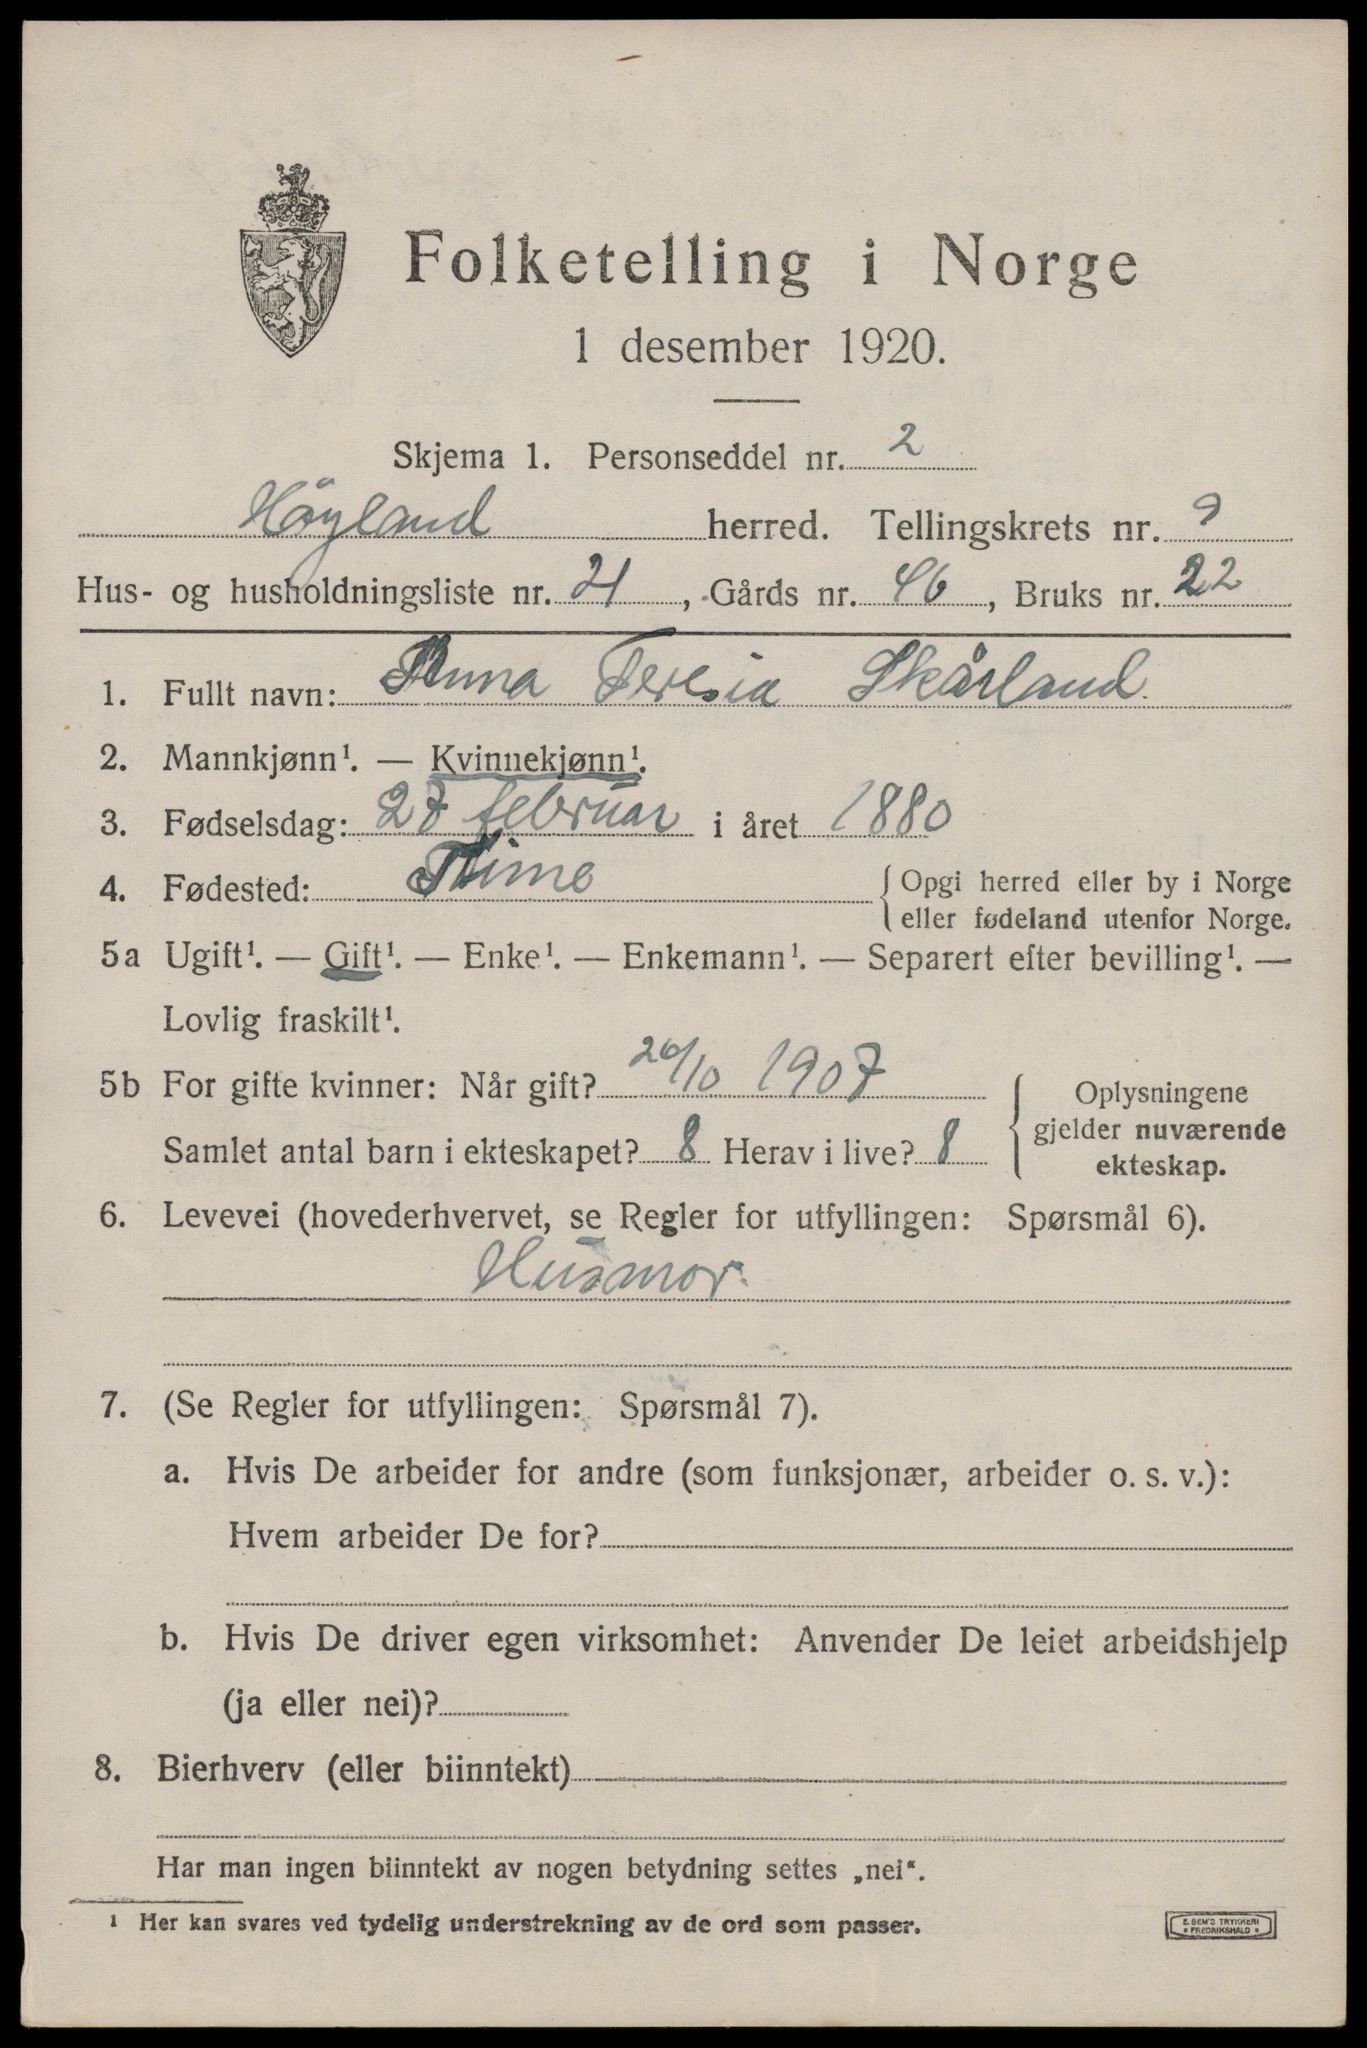 Folketelling i Norge
1 desember 1920.
Skjema 1. Personseddel nr. 2
Höyland herred. Tellingskrets nr. 9
Hus- og husholdningsliste nr. 21, Gårds nr. 46, Bruks nr. 22
1. Fullt navn: Anna Teresia Skårland.
2. Mannkjønn¹. — Kvinnekjønn¹.
3. Fødselsdag: 27 februar i året 1880
4. Fødested: Time
{ Opgi herred eller by i Norge
eller fødeland utenfor Norge.
5a Ugift¹. — Gift¹. — Enke¹. — Enkemann¹. — Separert efter bevilling¹. —
Lovlig fraskilt¹.
5b For gifte kvinner: Når gift? 26/10 1907
Samlet antal barn i ekteskapet? 8 Herav i live? 8
{ Oplysningene
gjelder nuværende
ekteskap.
6. Levevei (hovederhvervet, se Regler for utfyllingen: Spørsmål 6).
Husmor.
7. (Se Regler for utfyllingen: Spørsmål 7).
a. Hvis De arbeider for andre (som funksjonær, arbeider o. s. v.):
Hvem arbeider De for?
b. Hvis De driver egen virksomhet: Anvender De leiet arbeidshjelp
(ja eller nei)?
8. Bierhverv (eller biinntekt)
Har man ingen biinntekt av nogen betydning settes „nei“.
¹ Her kan svares ved tydelig understrekning av de ord som passer.
E. SEM'S TRYKKERI
• FREDRIKSHALD •